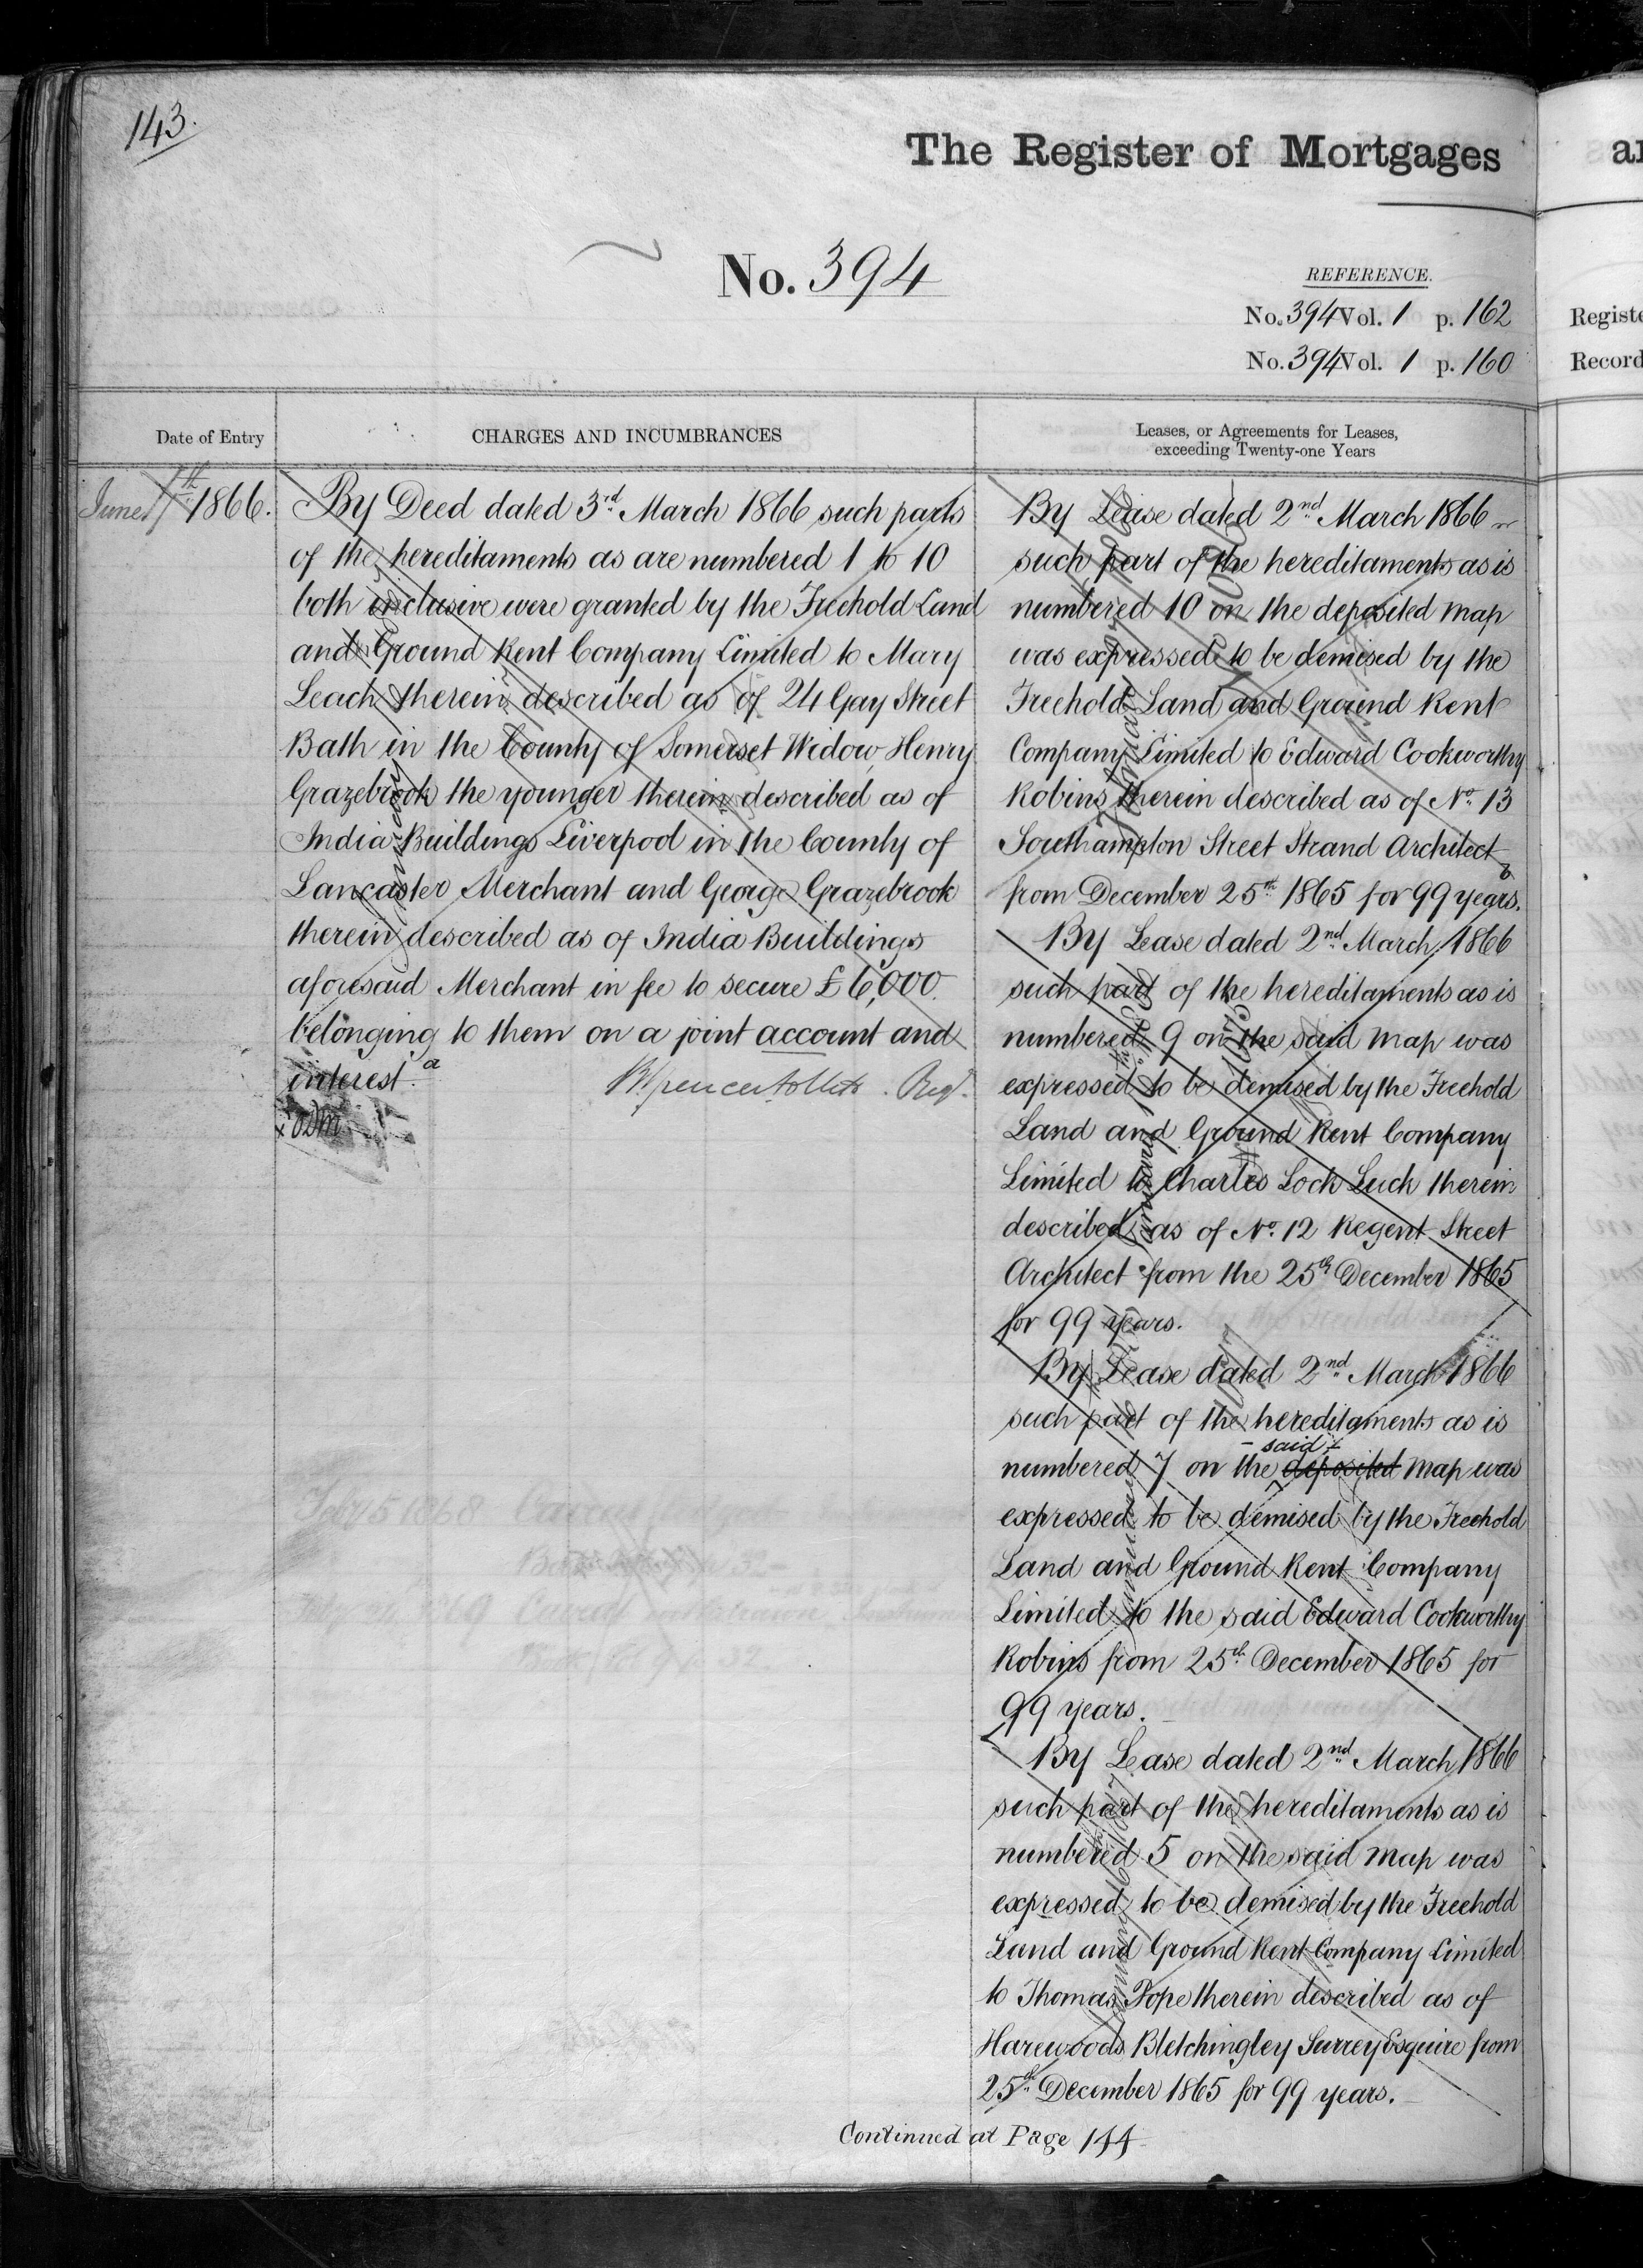 143.
The Register of Mortgages
No. 394
REFERENCE.
No. 394 Vol. 1 p. 162
No. 394 Vol. 1 p. 160
Registe
Record
Date of Entry
CHARGES AND INCUMBRANCES
Leases, or Agreements for Leases,
exceeding Twenty-one Years
June 7th 1866.
By Deed dated 3rd March 1866 such parts
of the hereditaments as are numbered 1 to 10
both inclusive were granted by the Freehold Land
and Ground Rent Company Limited to Mary
Leach therein described as of 24 Gay Street
Bath in the County of Somerset Widow, Henry
Grazebrook the younger therein described as of
India Buildings Liverpool in the County of
Lancaster Merchant and George Grazebrook
therein described as of India Buildings
aforesaid Merchant in fee to secure £6,000.
belonging to them on a joint account and
interest.
By Lease dated 2nd March 1866
such part of the hereditaments as is
numbered 10 on the deposited map
was expressed to be demised by the
Freehold Land and Ground Rent
Company Limited to Edward Cookworthy
Robins therein described as of No. 13
Southampton Street Strand Architect
from December 25th 1865 for 99 years.
By Lease dated 2nd March 1866
such part of the hereditaments as is
numbered 9 on the said map was
expressed to be demised by the Freehold
Land and Ground Rent Company
Limited to Charles Lock Luck therein
described as of No. 12 Regent Street
Architect from the 25th December 1865
for 99 years.
By Lease dated 2nd March 1866
such part of the hereditaments as is
said
numbered 7 on the deposited map was
expressed to be demised by the Freehold
Land and Ground Rent Company
Limited to the said Edward Cookworthy
Robins from 25th December 1865 for
99 years.
By Lease dated 2nd March 1866
such part of the hereditaments as is
numbered 5 on the said map was
expressed to be demised by the Freehold
Land and Ground Rent Company Limited
to Thomas Pope therein described as of
Harewoods Bletchingley Surrey Esquire from
25th December 1865 for 99 years.
Continued at Page 144